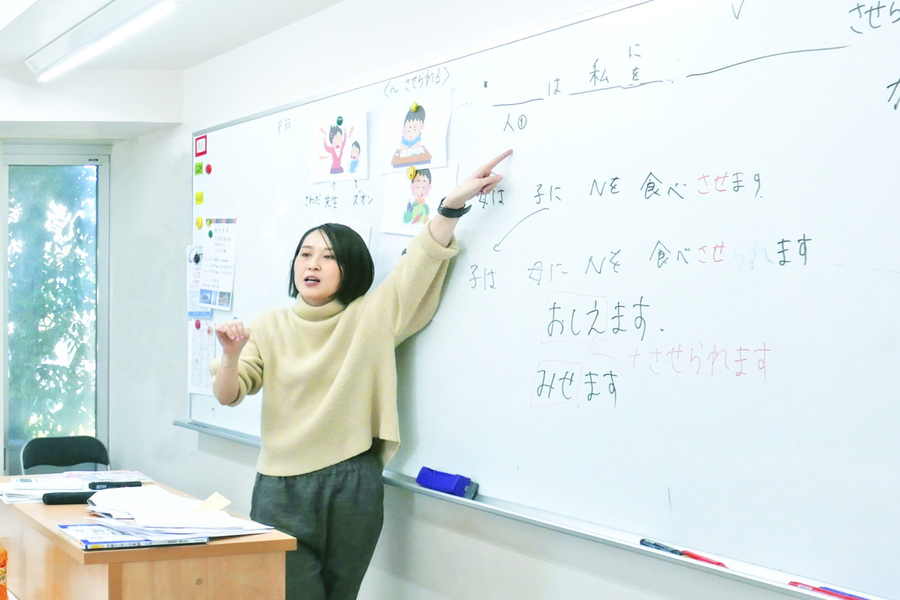 させら
〈〜させられる〉
P.93
___は 私 に
を
人①
さわだ先生 ズオン
母は 子に Nを 食べ させます
子は 母に Nを 食べ させ られ ます
おしえます.
+ させられます
みせます